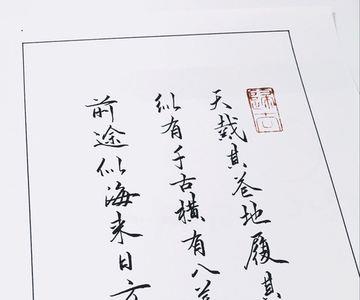 天戴其苍地履其
纵有千古横有八
前途似海来日方